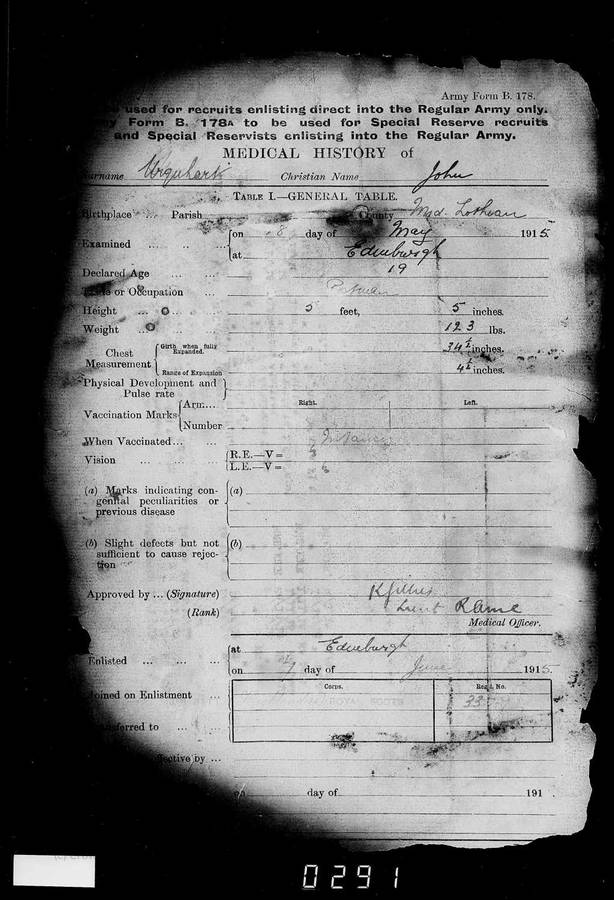 Army Form B. 178.
used for recruits enlisting direct into the Regular Army only.
Form B. 178A to be used for Special Reserve recruits
and Special Reservists enlisting into the Regular Army.
MEDICAL HISTORY of
Surname Urquhart Christian Name John
TABLE I.—GENERAL TABLE.
Birthplace ... Parish County Mid-Lothian
Examined ... on 8 day of May 1915.
at Edinburgh
Declared Age ... 19
or Occupation ...
Height ... 5 feet, 5 inches.
Weight ... 123 lbs.
Chest Measurement Girth when fully Expanded. 34½ inches.
Range of Expansion 4½ inches.
Physical Development and
Pulse rate
Right. Left.
Vaccination Marks Arm....
Number
When Vaccinated... Infancy
Vision ... R.E.—V =
L.E.—V = 6
(a) Marks indicating con-
genital peculiarities or
previous disease (a)
(b) Slight defects but not
sufficient to cause rejec-
tion (b)
Approved by ... (Signature)
(Rank) Lieut RAMC
Medical Officer.
Enlisted ... at Edinburgh
on day of June 1915.
Corps. Regtl. No.
Joined on Enlistment ...
Transferred to ...
by ...
on day of 191
0291